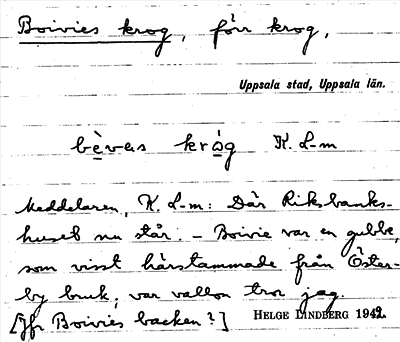 Boivies krog, förr krog,
Uppsala stad, Uppsala län.
bèvas kròg K. L-m
Meddelaren, K. L-m: Där Riksbanks-
huset nu står. – Boivie var en gubbe,
som visst härstammade från Öster-
by bruk, var vallon tror jag.
[Jfr Boivies backen?] HELGE LINDBERG 1942.